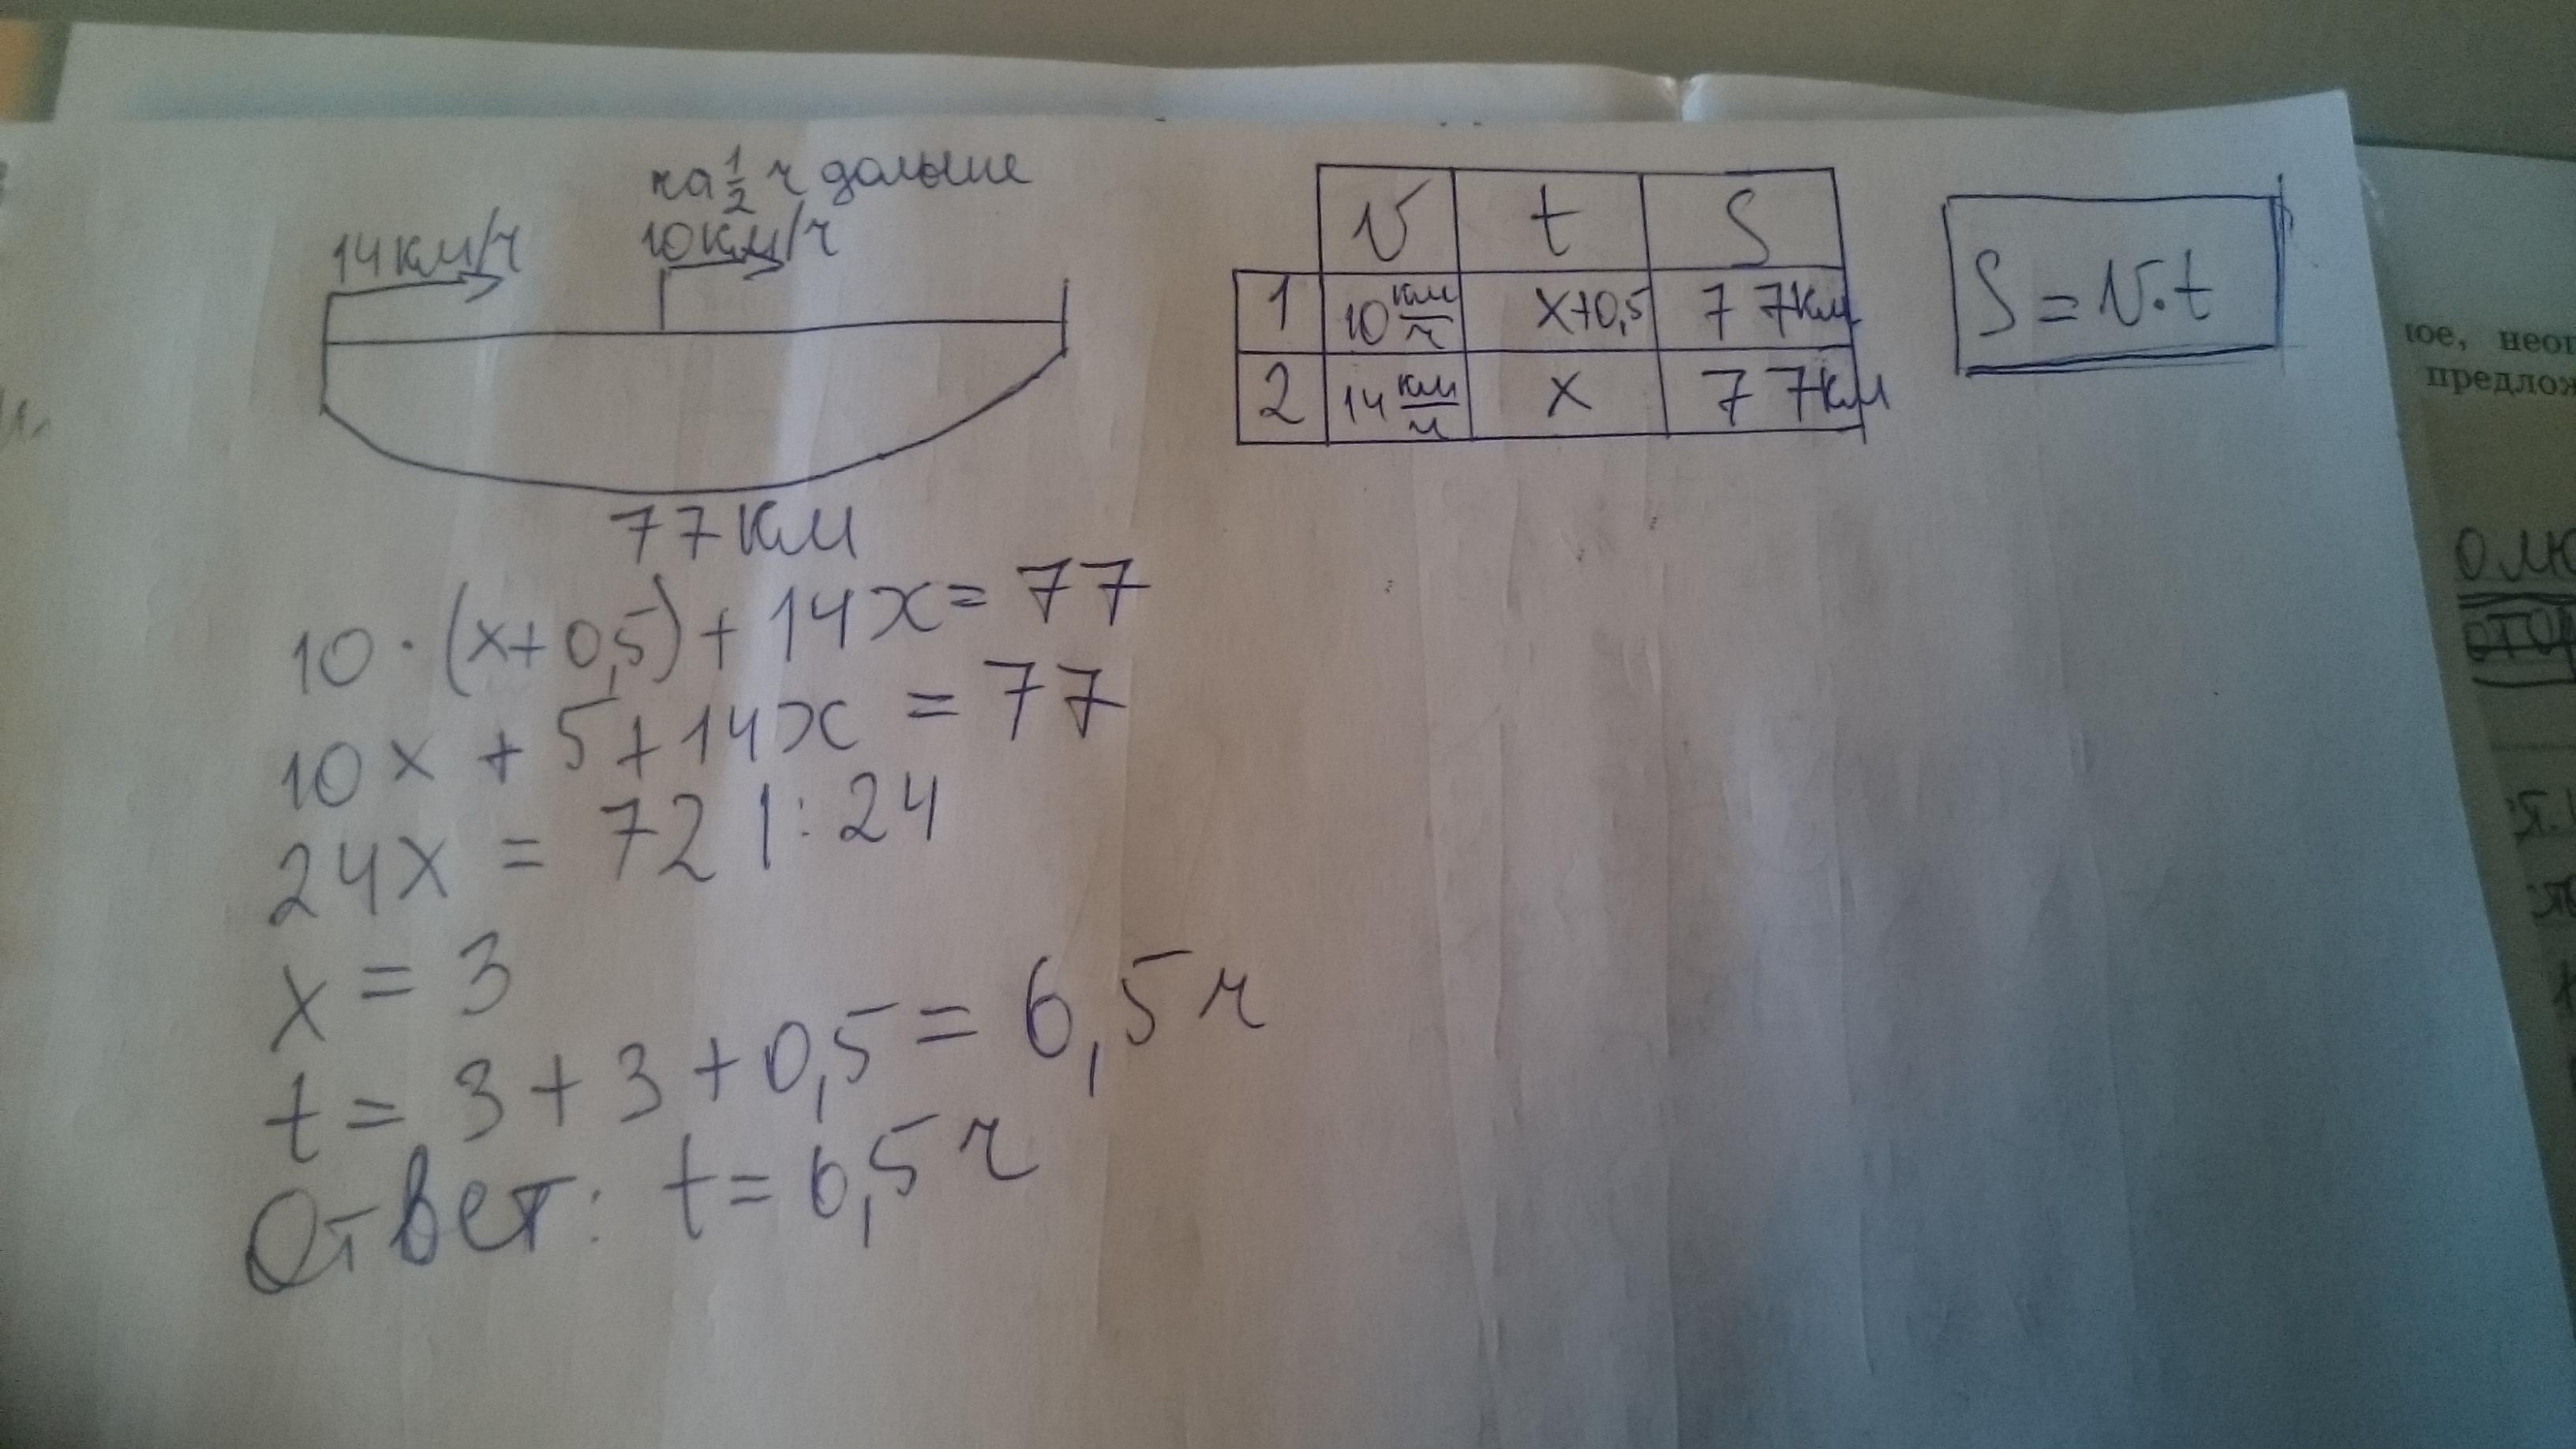 на 1/2 ч дольше
14 км/ч 10 км/ч
77 км
v t S
1 10 км/ч x+0,5 77км
2 14 км/ч x 77км
S = v·t
10 · (x+0,5) + 14x = 77
10x + 5 + 14x = 77
24x = 72 |: 24
x = 3
t = 3 + 3 + 0,5 = 6,5 ч
Ответ: t = 6,5 ч
предлож